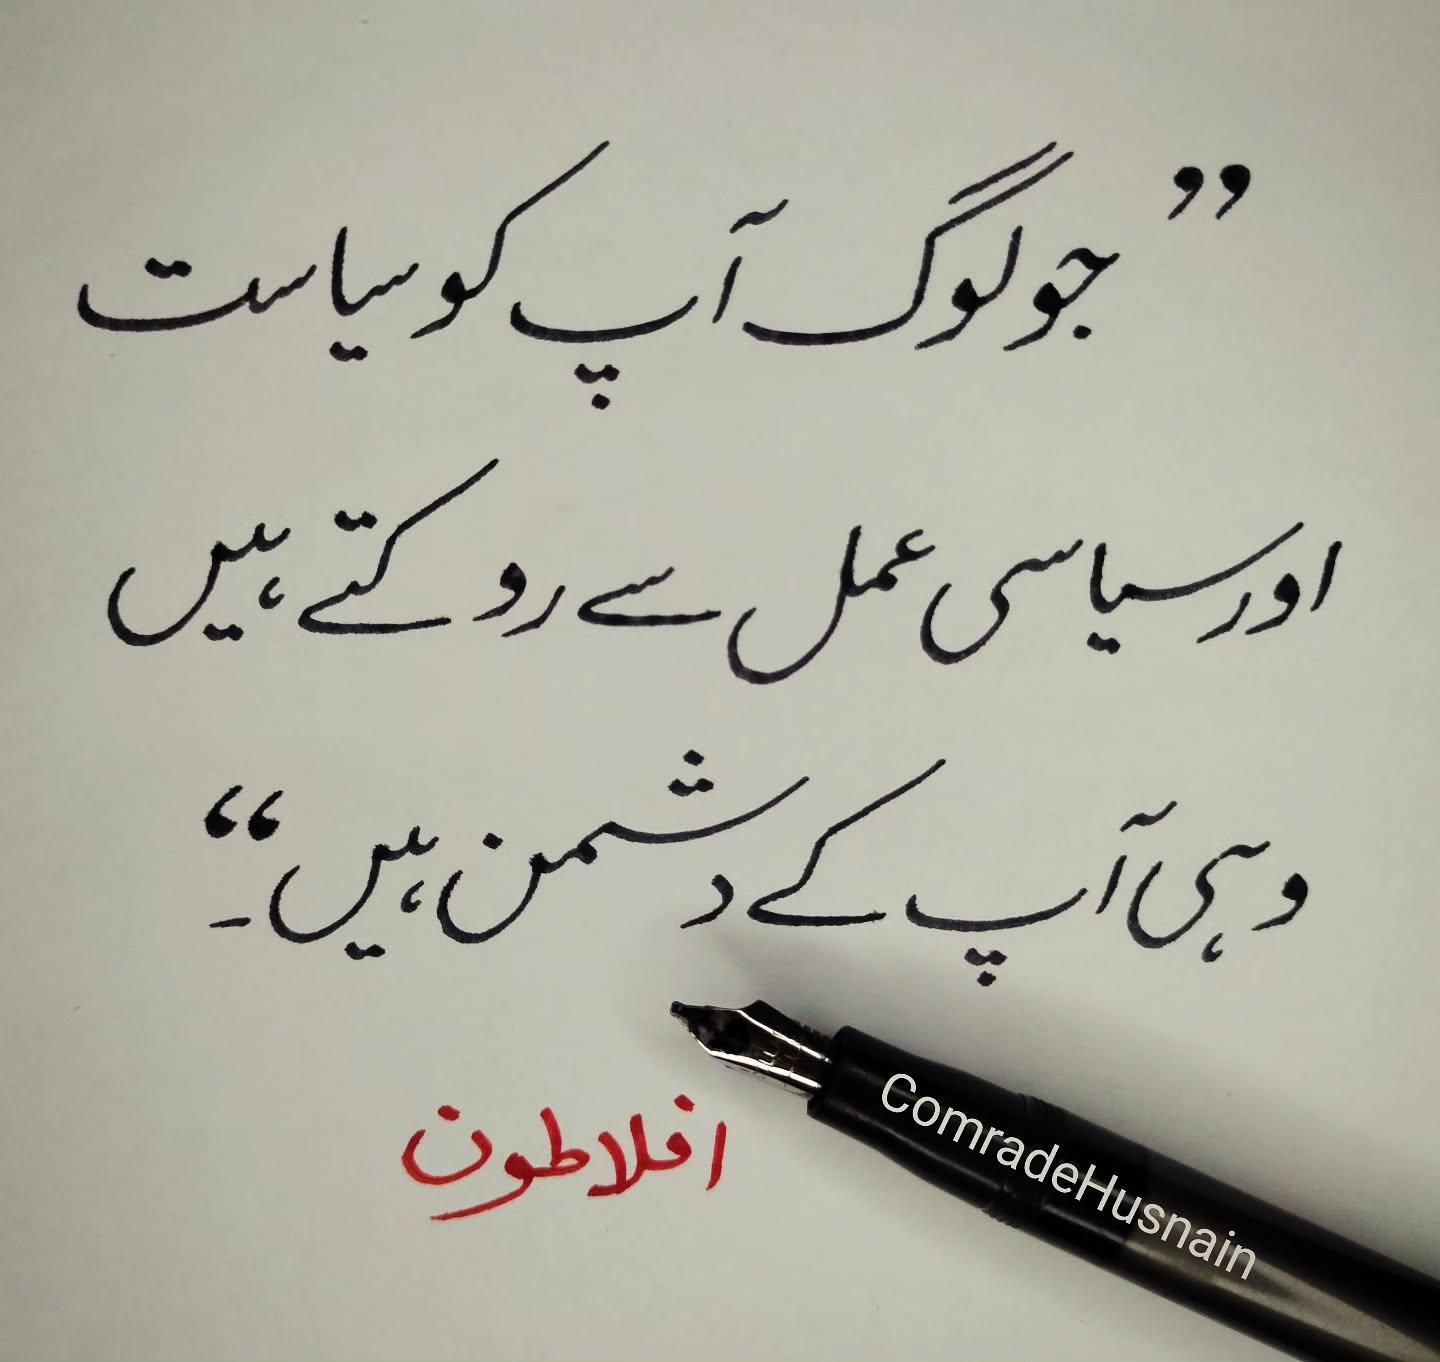 ”جو لوگ آپ کو سیاست
اور سیاسی عمل سے روکتے ہیں
وہی آپ کے دشمن ہیں“۔
افلاطون
ComradeHusnain